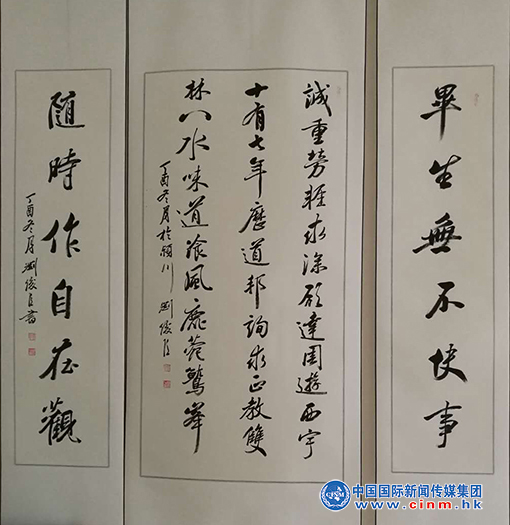 畢生無不快事
誠重勞輕求深願達周遊西宇
十有七年歷道邦詢求正教雙
林八水味道飡風鹿菀鷲峯
丁酉冬月於潁川 劉俊
隨時作自在觀
丁酉冬月 劉俊 書
CINM
中国国际新闻传媒集团
www.cinm.hk